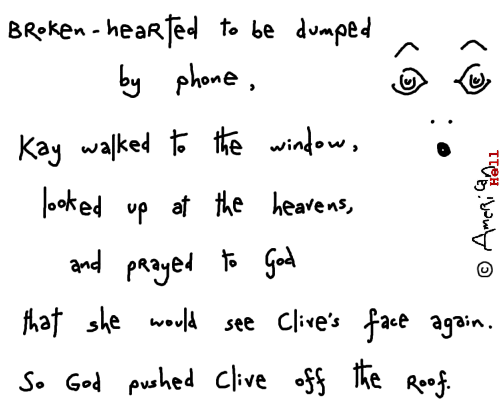 Broken-hearted to be dumped
by phone,
Kay walked to the window,
looked up at the heavens,
and prayed to God
that she would see Clive's face again.
So God pushed Clive off the Roof.
© American Hell